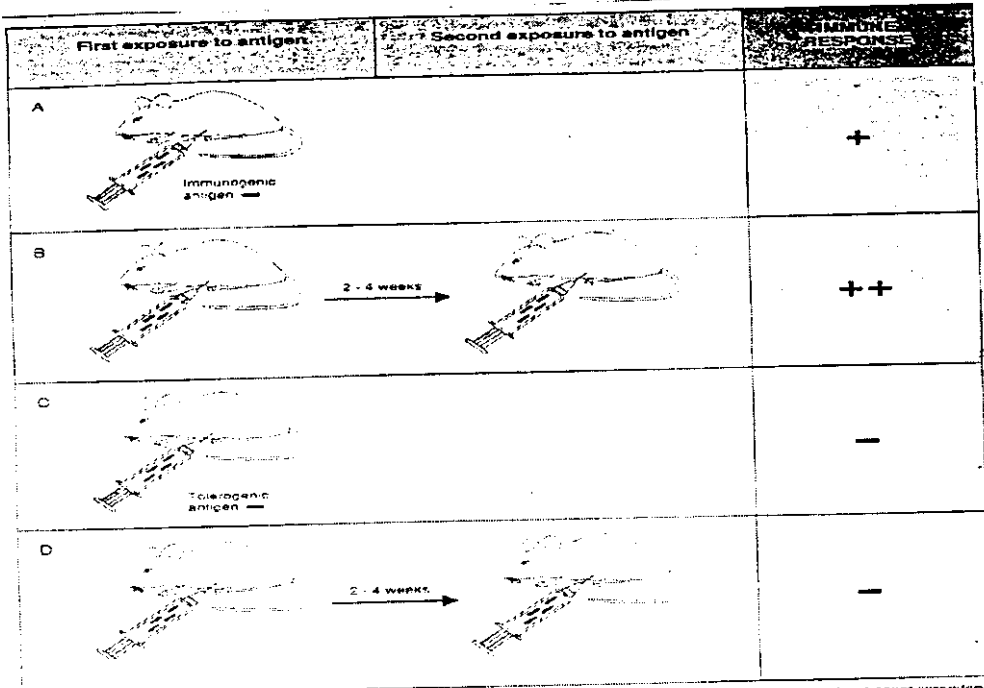 First exposure to antigen
Second exposure to antigen
IMMUNE
RESPONSE
A
Immunogenic
antigen
+
B
2 - 4 weeks
++
C
Tolerogenic
antigen
–
D
2 - 4 weeks
–